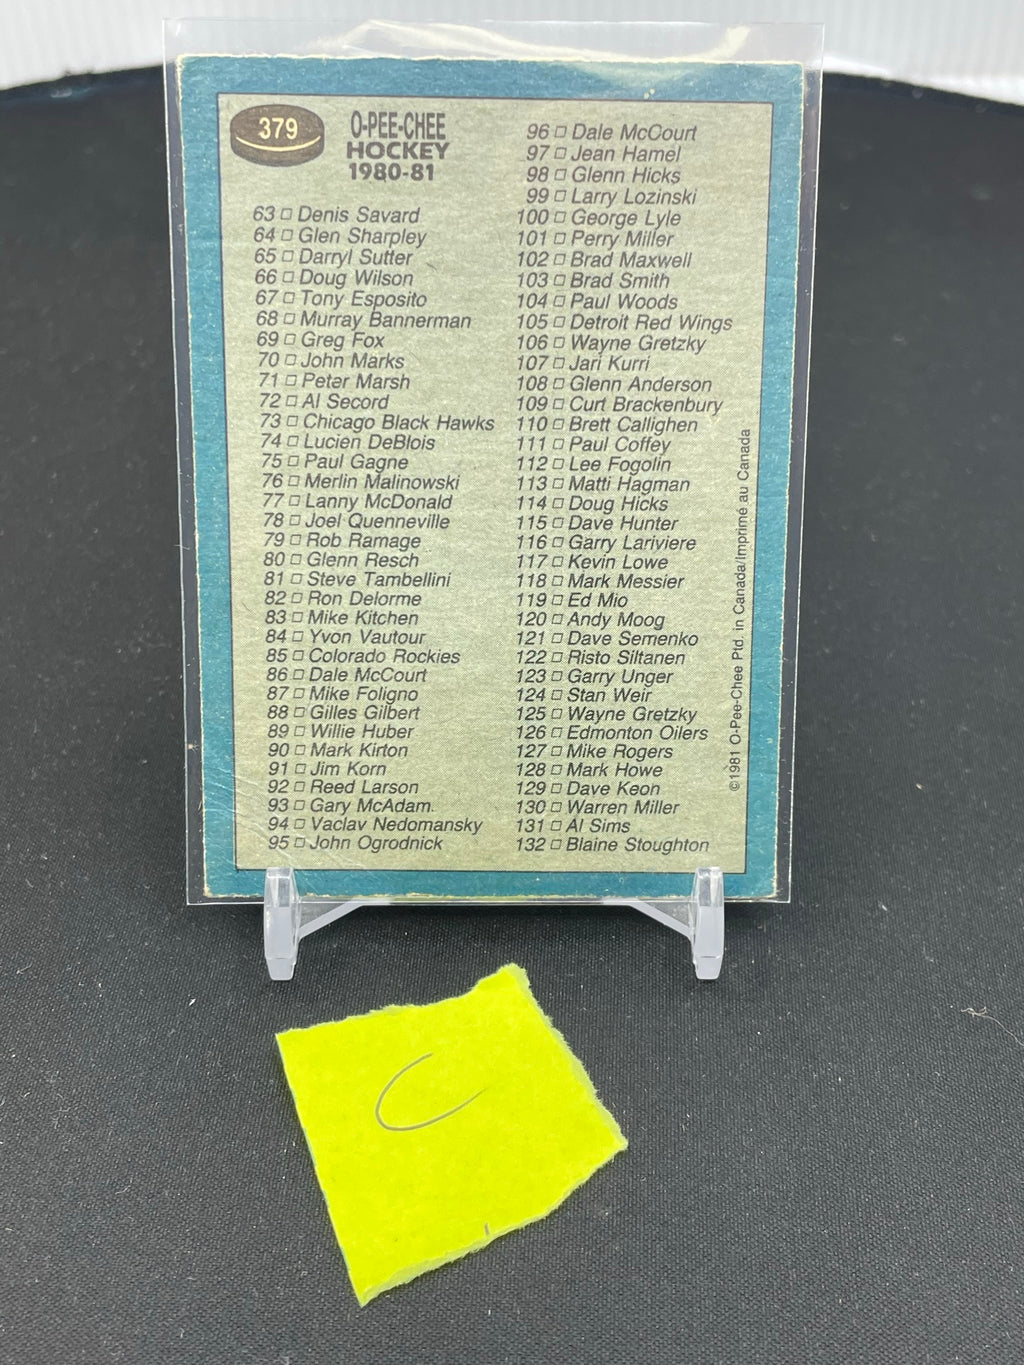 379
O-PEE-CHEE
HOCKEY
1980-81
63 □ Denis Savard
64 □ Glen Sharpley
65 □ Darryl Sutter
66 □ Doug Wilson
67 □ Tony Esposito
68 □ Murray Bannerman
69 □ Greg Fox
70 □ John Marks
71 □ Peter Marsh
72 □ Al Secord
73 □ Chicago Black Hawks
74 □ Lucien DeBlois
75 □ Paul Gagne
76 □ Merlin Malinowski
77 □ Lanny McDonald
78 □ Joel Quenneville
79 □ Rob Ramage
80 □ Glenn Resch
81 □ Steve Tambellini
82 □ Ron Delorme
83 □ Mike Kitchen
84 □ Yvon Vautour
85 □ Colorado Rockies
86 □ Dale McCourt
87 □ Mike Foligno
88 □ Gilles Gilbert
89 □ Willie Huber
90 □ Mark Kirton
91 □ Jim Korn
92 □ Reed Larson
93 □ Gary McAdam
94 □ Vaclav Nedomansky
95 □ John Ogrodnick
96 □ Dale McCourt
97 □ Jean Hamel
98 □ Glenn Hicks
99 □ Larry Lozinski
100 □ George Lyle
101 □ Perry Miller
102 □ Brad Maxwell
103 □ Brad Smith
104 □ Paul Woods
105 □ Detroit Red Wings
106 □ Wayne Gretzky
107 □ Jari Kurri
108 □ Glenn Anderson
109 □ Curt Brackenbury
110 □ Brett Callighen
111 □ Paul Coffey
112 □ Lee Fogolin
113 □ Matti Hagman
114 □ Doug Hicks
115 □ Dave Hunter
116 □ Garry Lariviere
117 □ Kevin Lowe
118 □ Mark Messier
119 □ Ed Mio
120 □ Andy Moog
121 □ Dave Semenko
122 □ Risto Siltanen
123 □ Garry Unger
124 □ Stan Weir
125 □ Wayne Gretzky
126 □ Edmonton Oilers
127 □ Mike Rogers
128 □ Mark Howe
129 □ Dave Keon
130 □ Warren Miller
131 □ Al Sims
132 □ Blaine Stoughton
©1981 O-Pee-Chee Ptd. in Canada/Imprimé au Canada
C